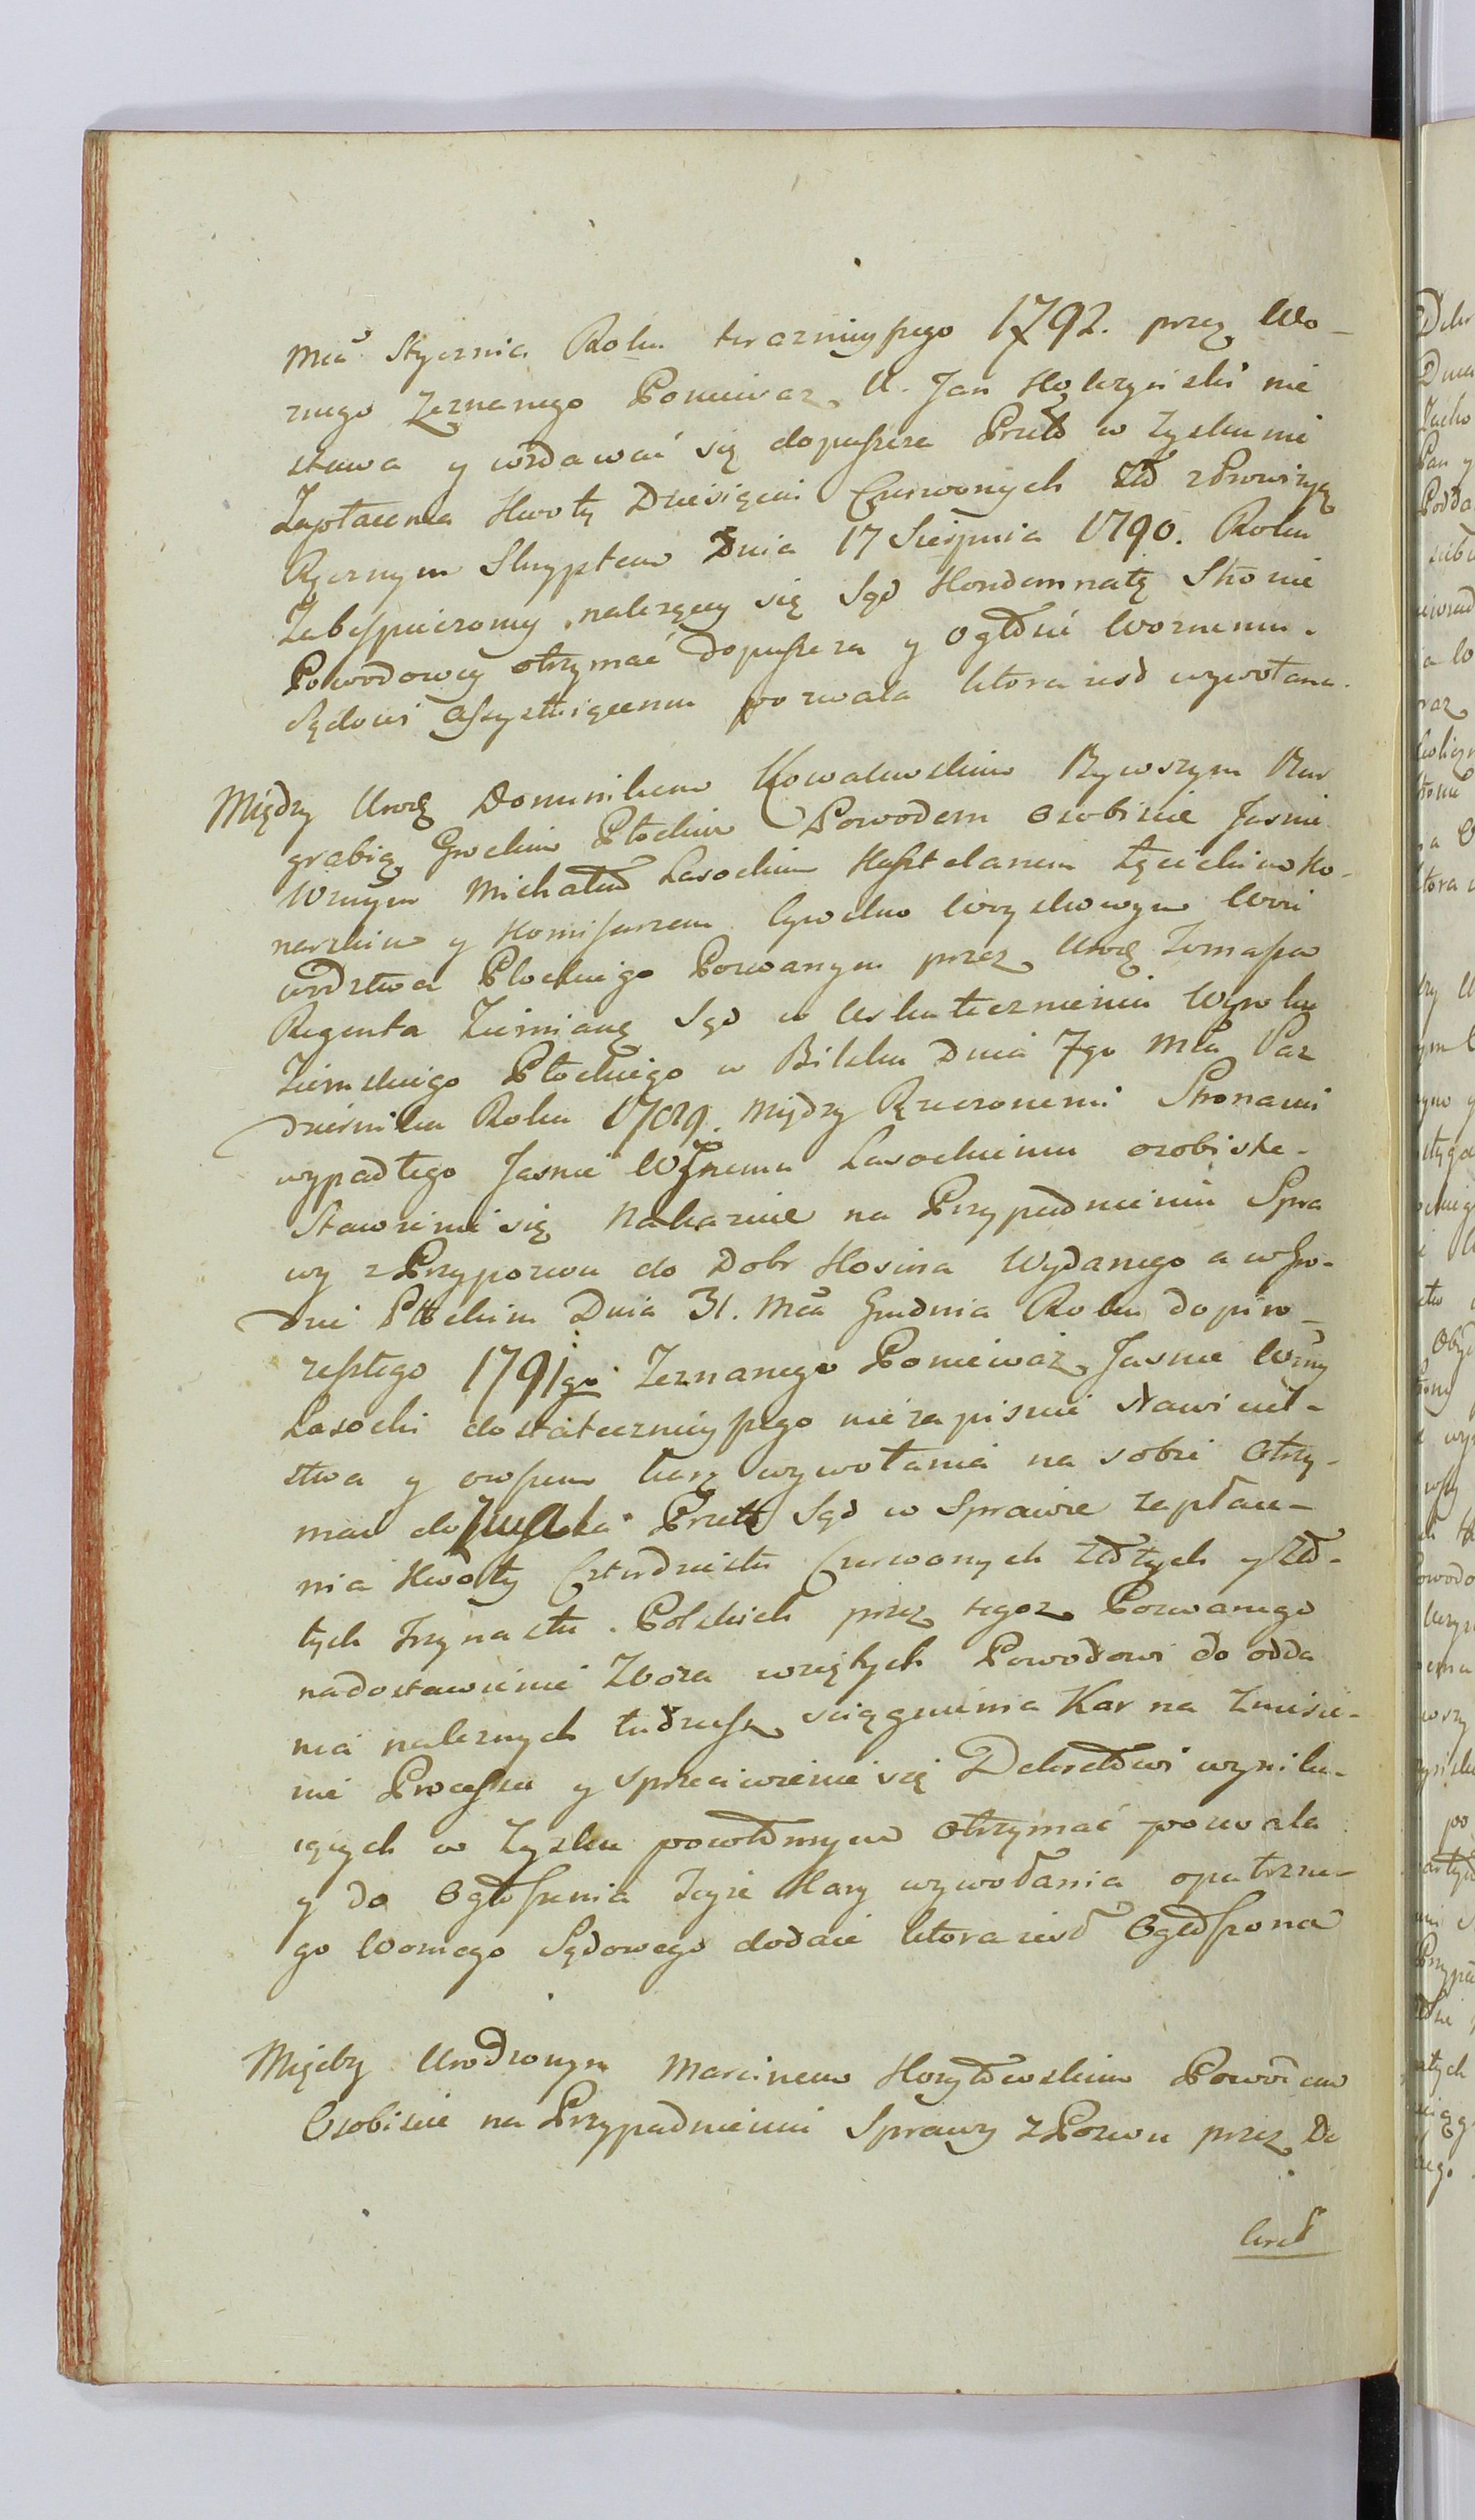 Mca Stycznia Roku teraznieyszego 1792. przez Wo-
znego Zeznanego Poniewaz U. Jan nie
stawa y wzdawać się dopuszcza Przeto w Zysku nie
Zapłacenia Kwoty Dziesięciu Czerwonych Zło z Prowizyą
Ręcznym Skryptem Dnia 17 Sierpnia 1790. Roku
Zabespieczoney, należącey się Sąd Kondemnatę Stronie
Powodowey otrzymać dopuszcza y ogłosić Woznemu
Sądowi Assystuiącemu pozwala ktora iest wywołana.
Między Urodz Dominikiem Kowalewskim Bywszym Bur
grabią Grodzkim Płockim Powodem Osobiście Jasnie
Wnym Michałem Lasockim Kasztelanem Łęcickim Ko-
narskim y Komisarzem Cywilno Woyskowym Woie
wodztwa Płockiego Pozwanym przez Urodz Tomasza
Regenta Ziemianę Sąd w Uskutecznieniu Wyroku
Ziemskiego Płockiego w Bilsku Dnia 7go Mca Paz
dziernika Roku 1789. Między Rzeczonemi Stronami
wypadłego Jasnie Wżnemu Lasockiemu osobiste
Stawienie się Nakazuie na Przypadnieniu Spra
wy z Przypozwu do Dobr Kosina Wydanego a w Gro-
dzie Płckim Dnia 31. Mca Grudnia Roku dopiro
zeszłego 1791go Zeznanego Poniewaz Jasnie Wżny
Lasocki dostatecznieyszego nie zapisuie stawiciel-
stwa y owszem karę wywołania na sobie Otrzy-
mać dopuszcza Przeto Sąd w Sprawie zapłace-
nia Kwoty Czterdziestu Czerwonych Złotych y Zło-
tych Trzynastu Polskich przez tegoz Pozwanego
nadostawienie Zboza wziętych Powodowi do odda
nia naleznych tudzież sciągnienia Kar na Zniesie-
nie Processu y sprzeciwienie się Dekretowi wynika-
iących w Zysku powtornym Otrzymać pozwala
y do Ogłoszenia Teyże Kary wywołania opatrzne-
go Woznego Sądowego dodaie ktora iest Ogłoszona
Między Urodzonym Marcinem Powodem
Osobiście na Przypadnieniu Sprawy z Pozwu przez De
kret